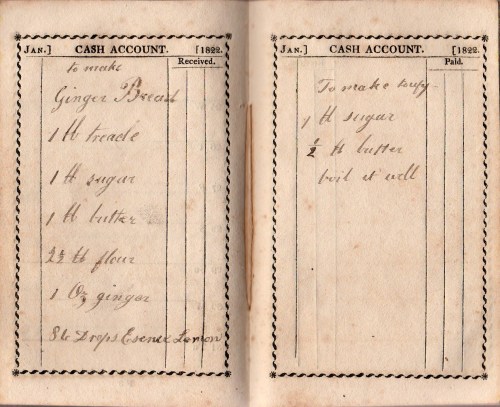 JAN.] CASH ACCOUNT. [1822.
Received.
to make
Ginger Bread
1 lb treacle
1 lb sugar
1 lb butter
2½ lb flour
1 Oz ginger
86 Drops Esence Lemon
JAN.] CASH ACCOUNT. [1822.
Paid.
To make toufy
1 lb sugar
½ lb butter
boil it well